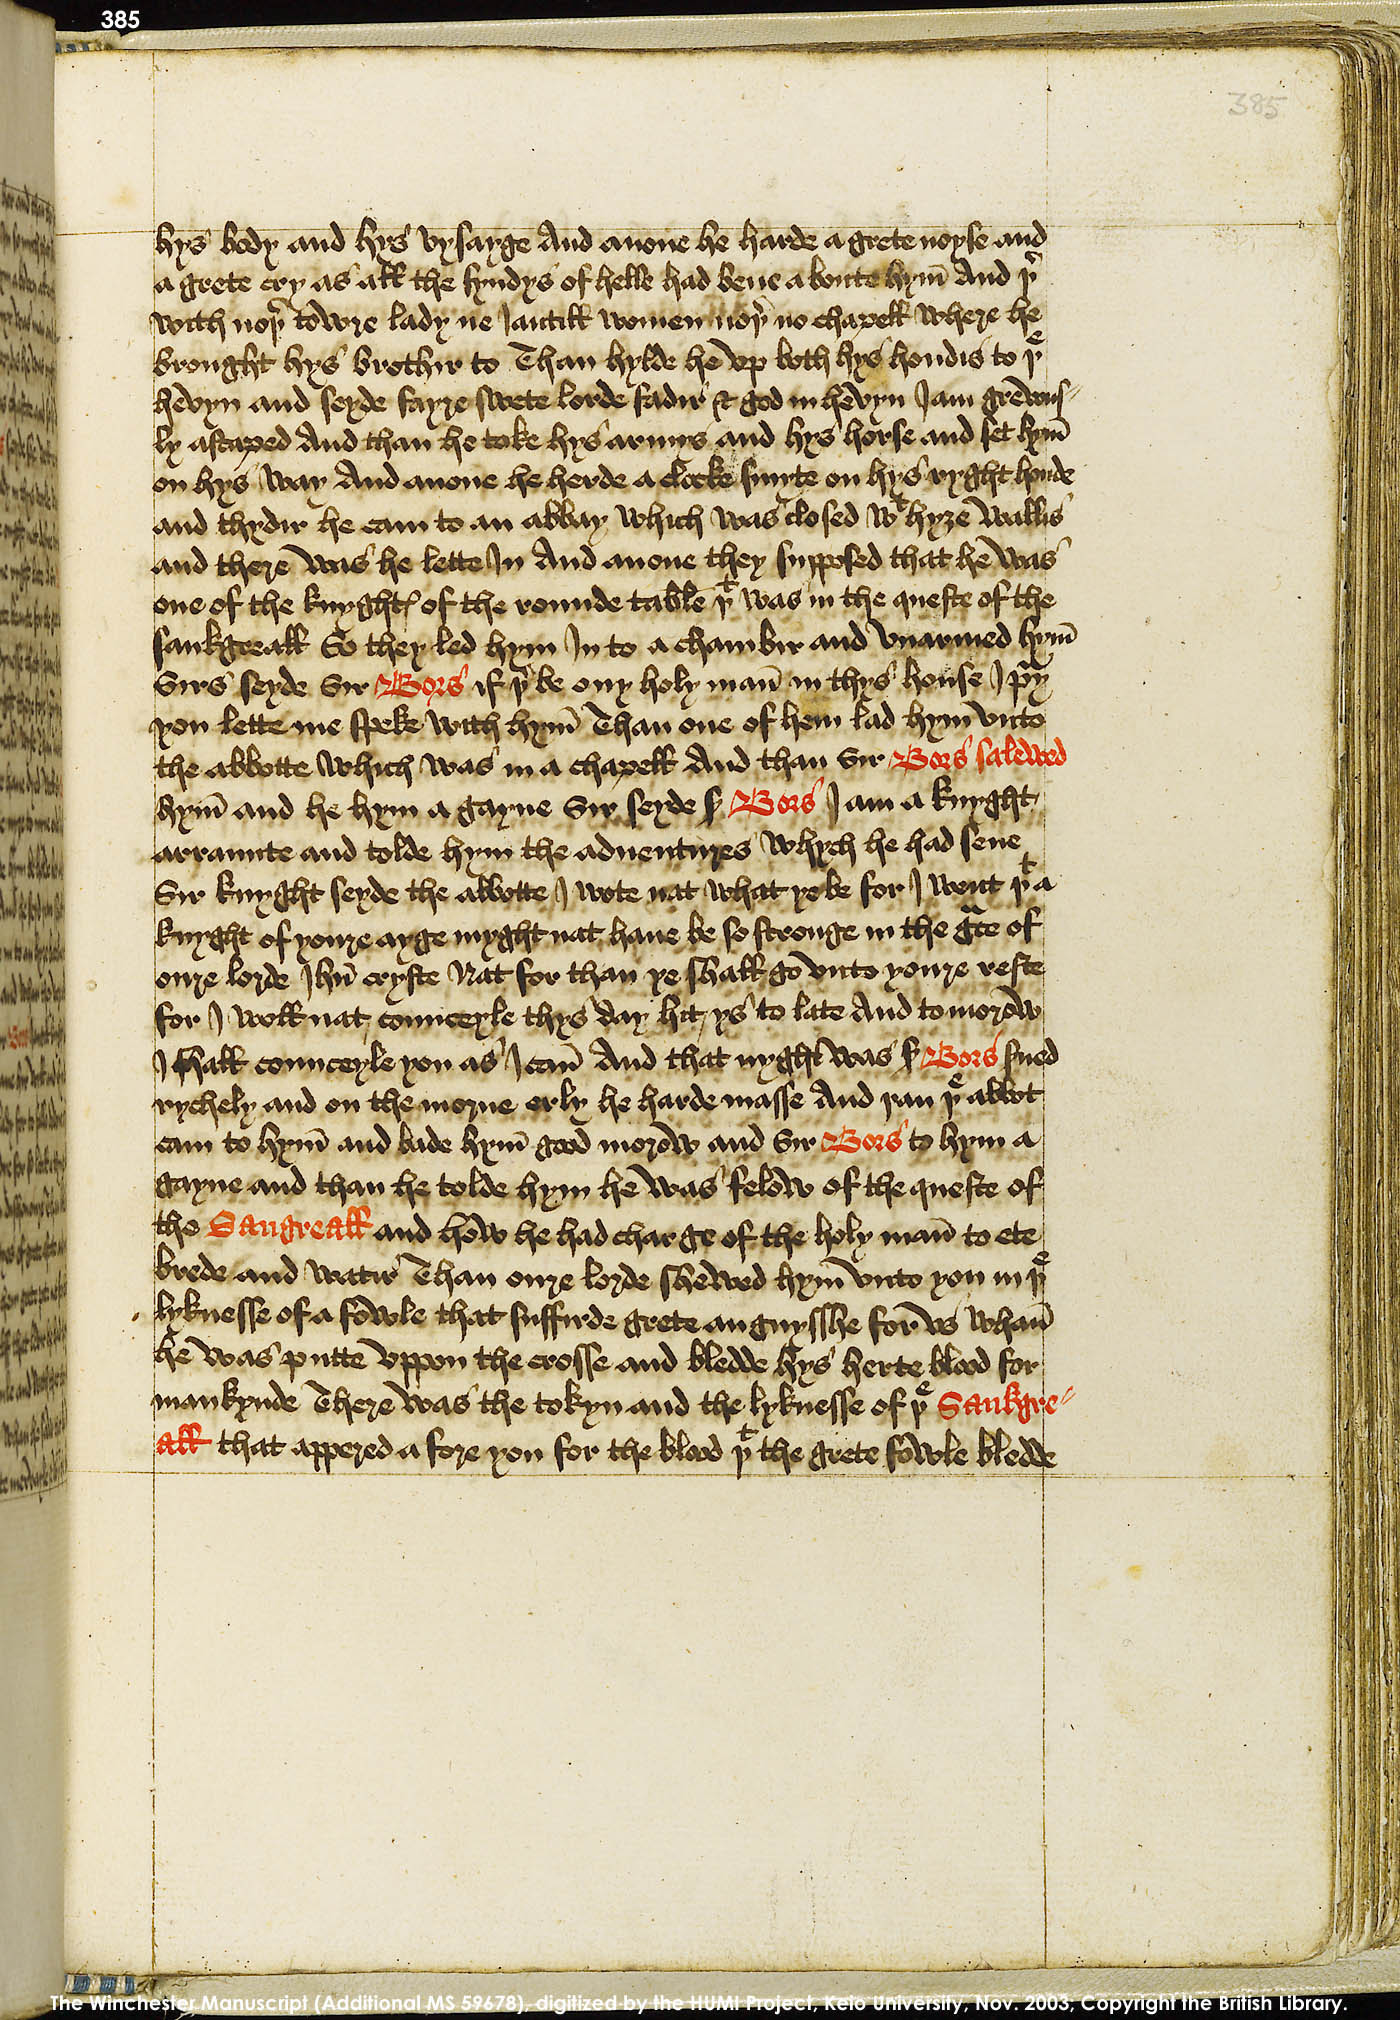 385
385
hys body and hys vysayge And anone he harde a grete noyse and
a grete cry as all the fyndys of helle had bene a boute hym̄ And þʳ
with noþʳ towre lady ne Jantill women noþʳ no chapell where he
brought hys brothir to Than hylde he vp both hys hondis to þᵉ
hēvyn and seyde fayre swete lorde fadir & god in hēvyn I am grēvus-
ly ascaped And than he toke hys armys and hys horse and set hym̄
on hys way And anone he herde a clocke smyte on hys ryght honde
and thydir he cam to an abbay which was closed wᵗ hyȝe wallis
and there was he lette In And anone they supposed that he was
one of the knyghtꝭ of the rounde table þᵗ was in the queste of the
sankgreall So they led hym In to a chambir and vnarmed hym̄
Sirs seyde Sir Bors if þʳ be ony holy man̄ in thys house I pʳy
you lette me speke with hym̄ Than one of hem lad hym vnto
the abbotte which was in a chapell And than Sir Bors salewed
hym̄ and he hym a gayne Sir seyde Sʳ Bors I am a knyght
arraunte and tolde hym the adventures whych he had sene
Sir knyght seyde the abbotte I wote nat what ye be for I went þᵗ a
knyght of youre ayge myght nat have be so stronge in the gᵃce of
oure lorde Jhū cryste Nat for than ye shall go vnto youre reste
for I woll nat counceyle thys day hit ys to late And to morow
I shall counceyle you as I can̄ And that nyght was Sʳ Bors sʳued
rychely and on the morne erly he harde masse And þan þᵉ abbot
cam to hym̄ and bade hym̄ good morow and Sir Bors to hym a
gayne and than he tolde hym he was felow of the queste of
the Sangreall and how he had charge of the holy man̄ to ete
brede and watir Than oure lorde shewed hym̄ vnto you in þᵉ
lyknesse of a fowle that suffirde grete anguysshe for vs whan̄
he was putte vppon the crosse and bledde hys herte blood for
mankynde There was the tokyn and the lyknesse of þᵉ Sankgre-
all that appered a fore you for the blood þᵗ the grete fowle bledde
The Winchester Manuscript (Additional MS 59678), digitized by the HUMI Project, Keio University, Nov. 2003, Copyright the British Library.